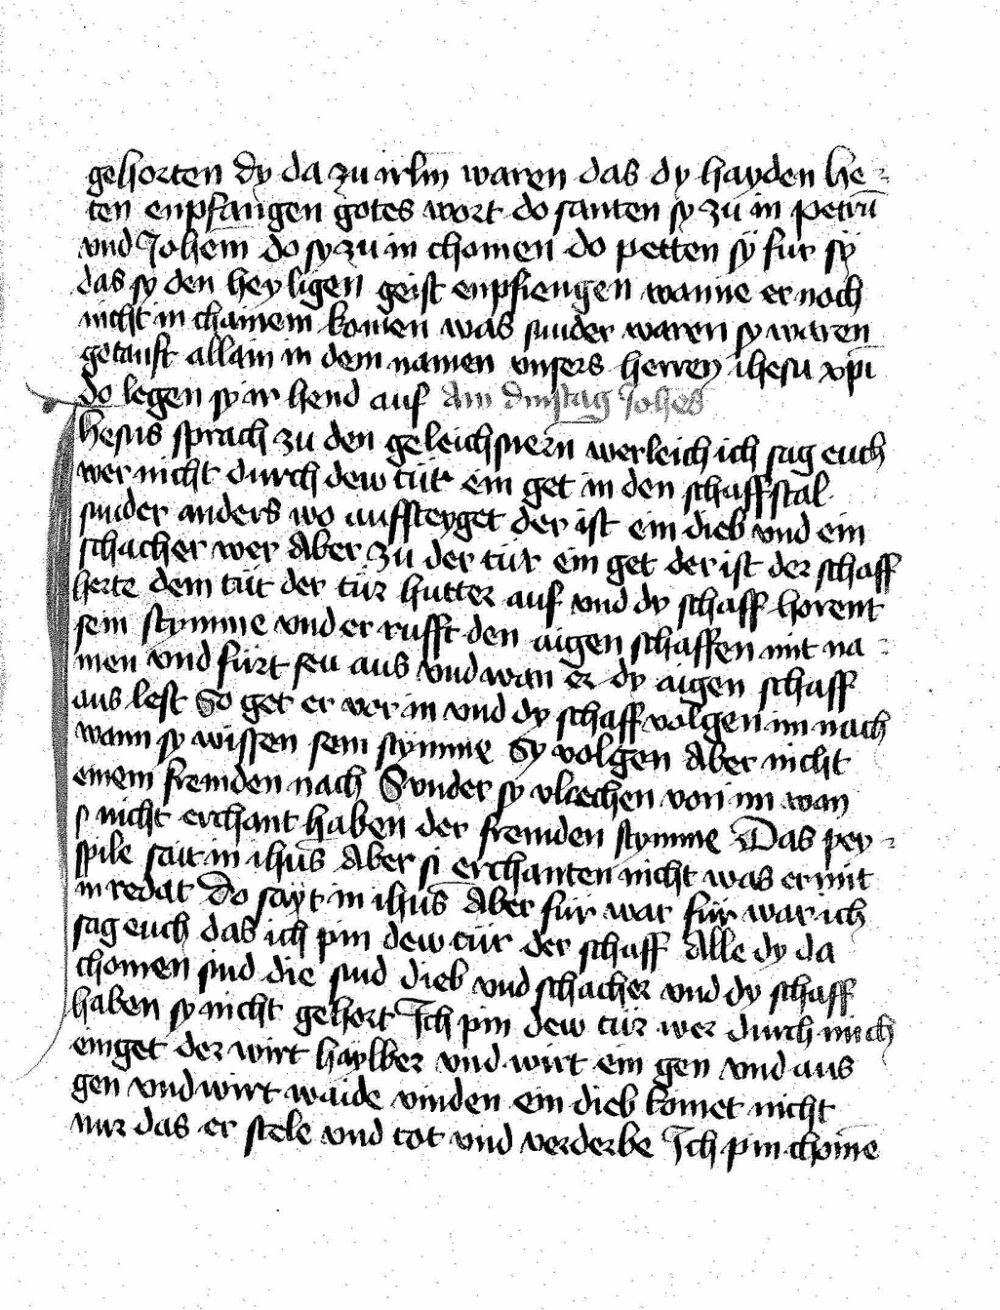 gehorten dy da zu irlm waren das dy hayden he
ten enpfangen gotes wort do santen sy zu in petrū
vnd Johem do sy zu in chomen do petten sÿ fur sÿ
das sy den heyligen geist enpfiengen wanne er noch
nicht in chainem komen was sunder waren sy waren
getauft allain in dem namen vnsers herren ihesu xpi
do legen sy ir hend auf Am dinstag Johēs
Jhesus sprach zu den geleichsnern werleich ich sag euch
wer nicht durch dew tür ein get in den schaffstal
sunder anders wo auffsteyget der ist ein dieb vnd ein
schacher wer Aber zu der tür ein get der ist der schaff
herte dem tüt der tür hutter auf vnd dy schaff horent
sein stymme vnd er rufft den aigen schaffen mit na
men vnd fürt seu aus vnd wan er dy aigen schaff
aus lest So get er vor in vnd dy schaff volgen im nach
wann sy wissen sein stymme Sy volgen Aber nicht
einem fremden nach Sunder sy vliechen von im wan
s nicht erchant haben der fremden stymme Das pey
spile sait in ihūs Aber si erchanten nicht was er mit
in redat Do sayt in ihūs Aber für war für war ich
sag euch das ich pin dew tür der schaff Alle dy da
chomen sind die sind dieb vnd schacher vnd dy schaff
haben sy nicht gehort Ich pin dew tür wer durch mich
einget der wirt haylber vnd wirt ein gen vnd aus
gen vnd wirt waide vinden ein dieb komet nicht
nur das er stele vnd tot vnd verderbe Ich pin chomē